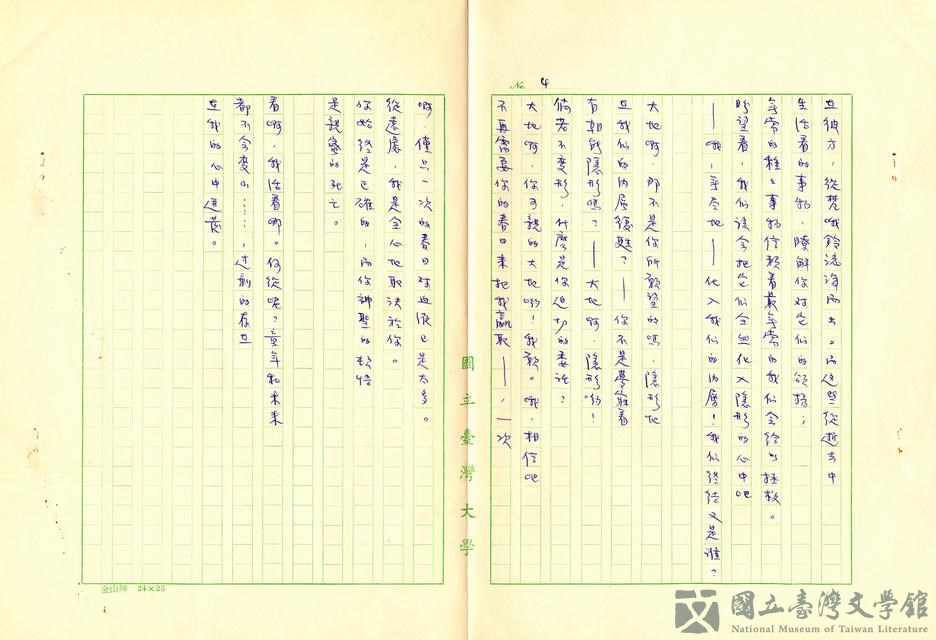 No. 4
在彼方，從梵哦鈴流瀉而出。而這些從逝去中
生活着的事物，瞭解你對它们的頌揚；
無常的種種事物信賴着最無常的我们会给与拯救。
盼望着，我们該会把它们全血化入隱形的心中吧
——哦，無尽地——化入我们的内層！我们終结又是誰？
大地啊，那不是你所願望的嗎，隱形地
在我们的内層復甦？——你不是夢寐着
有朝能隱形嗎？——大地啊，隱形喲！
倘若不变形，什麼是你迫切的委託？
大地啊，你可親的大地喲！我願。哦，相信吧
不再需要你的春日来把我贏取——，一次
啊，僅只一次的春日对血液已是太多。
從遠處，我是全心地取決於你。
你始終是正確的，而你神聖的
是親密的死亡。
看啊，我活着哪。何從呢？童年和未来
都不会变小……，过剩的存在
在我的心中迸发。
國立臺灣大學
金山牌 24×25
國立臺灣文學館
National Museum of Taiwan Literature